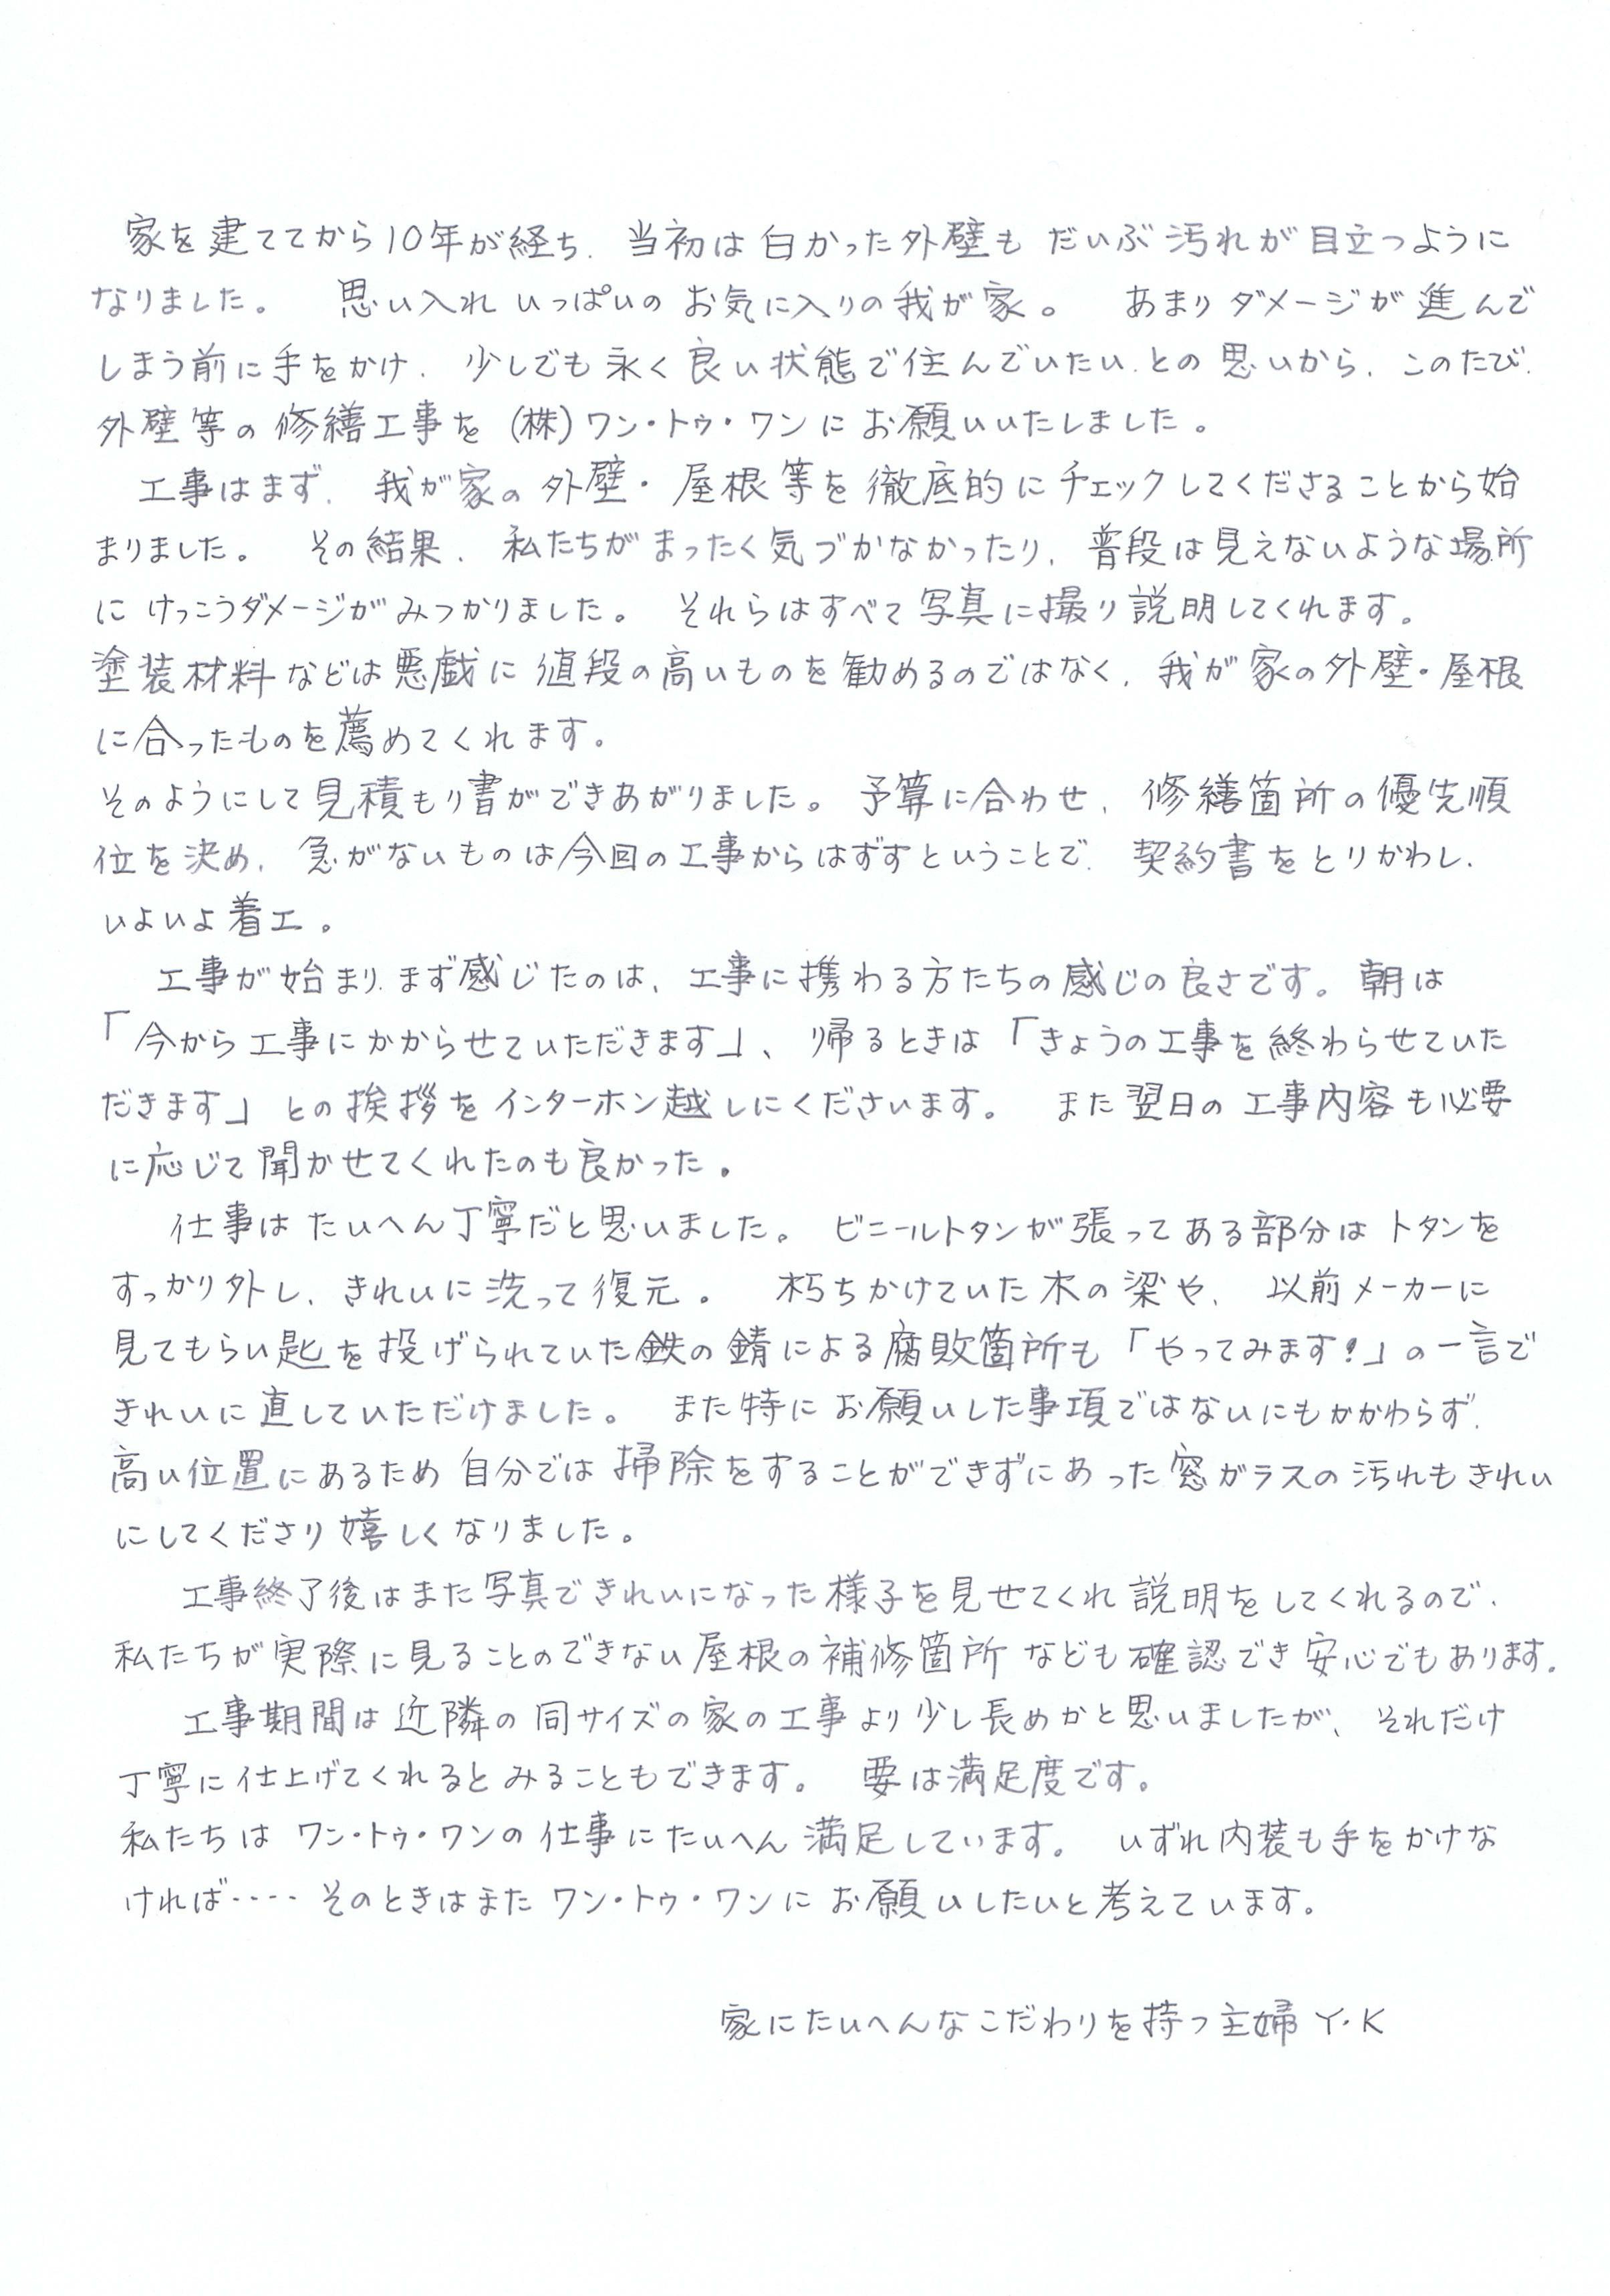 家を建ててから10年が経ち、当初は白かった外壁も だいぶ汚れが目立つように
なりました。 思い入れいっぱいの お気に入りの我が家。 あまりダメージが進んで
しまう前に手をかけ、少しでも永く良い状態で住んでいたい、との思いから、このたび、
外壁等の修繕工事を(株)ワン・トゥ・ワンにお願いいたしました。
工事はまず、我が家の外壁・屋根等を徹底的にチェックしてくださることから始
まりました。 その結果、私たちがまったく気づかなかったり、普段は見えないような場所
にけっこうダメージがみつかりました。 それらはすべて写真に撮り説明してくれます。
塗装材料などは悪戯に値段の高いものを勧めるのではなく、我が家の外壁・屋根
に合ったものを薦めてくれます。
そのようにして見積もり書ができあがりました。予算に合わせ、修繕箇所の優先順
位を決め、急がないものは今回の工事からはずすということで、契約書をとりかわし、
いよいよ着工。
工事が始まり、まず感じたのは、工事に携わる方たちの感じの良さです。朝は
「今から工事にかからせていただきます」、帰るときは「きょうの工事を終わらせていた
だきます」との挨拶をインターホン越しにくださいます。 また翌日の工事内容も必要
に応じて聞かせてくれたのも良かった。
仕事はたいへん丁寧だと思いました。 ビニールトタンが張ってある部分はトタンを
すっかり外し、きれいに洗って復元。 朽ちかけていた木の梁や、以前メーカーに
見てもらい匙を投げられていた鉄の錆による腐敗箇所も「やってみます!」の一言で
きれいに直していただけました。 また特にお願いした事項ではないにもかかわらず、
高い位置にあるため自分では掃除をすることができずにあった窓ガラスの汚れもきれい
にしてくださり嬉しくなりました。
工事終了後はまた写真できれいになった様子を見せてくれ説明をしてくれるので、
私たちが実際に見ることのできない屋根の補修箇所なども確認でき安心でもあります。
工事期間は近隣の同サイズの家の工事より少し長めかと思いましたが、それだけ
丁寧に仕上げてくれるとみることもできます。 要は満足度です。
私たちはワン・トゥ・ワンの仕事にたいへん満足しています。 いずれ内装も手をかけな
ければ‥‥そのときはまたワン・トゥ・ワンにお願いしたいと考えています。
家にたいへんなこだわりを持つ主婦 Y・K